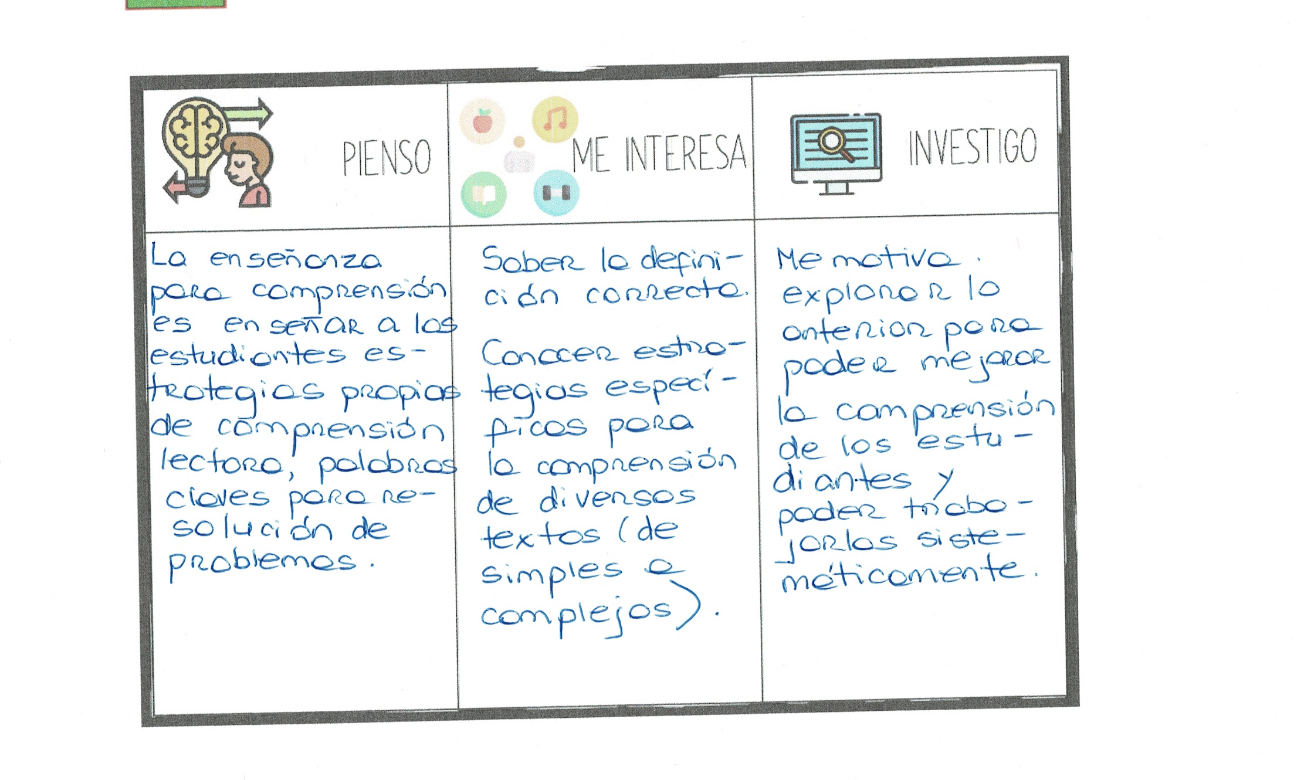 PIENSO
La enseñanza
para comprensión
es enseñar a los
estudiantes es-
trategias propias
de comprensión
lectora, palabras
claves para re-
solución de
problemas.
ME INTERESA
Saber la defini-
ción correcta.
Conocer estra-
tegias especí-
ficas para
la comprensión
de diversos
textos (de
simples a
complejos).
INVESTIGO
Me motiva
explorar lo
anterior para
poder mejorar
la comprensión
de los estu-
diantes y
poder traba-
jarlos siste-
máticamente.